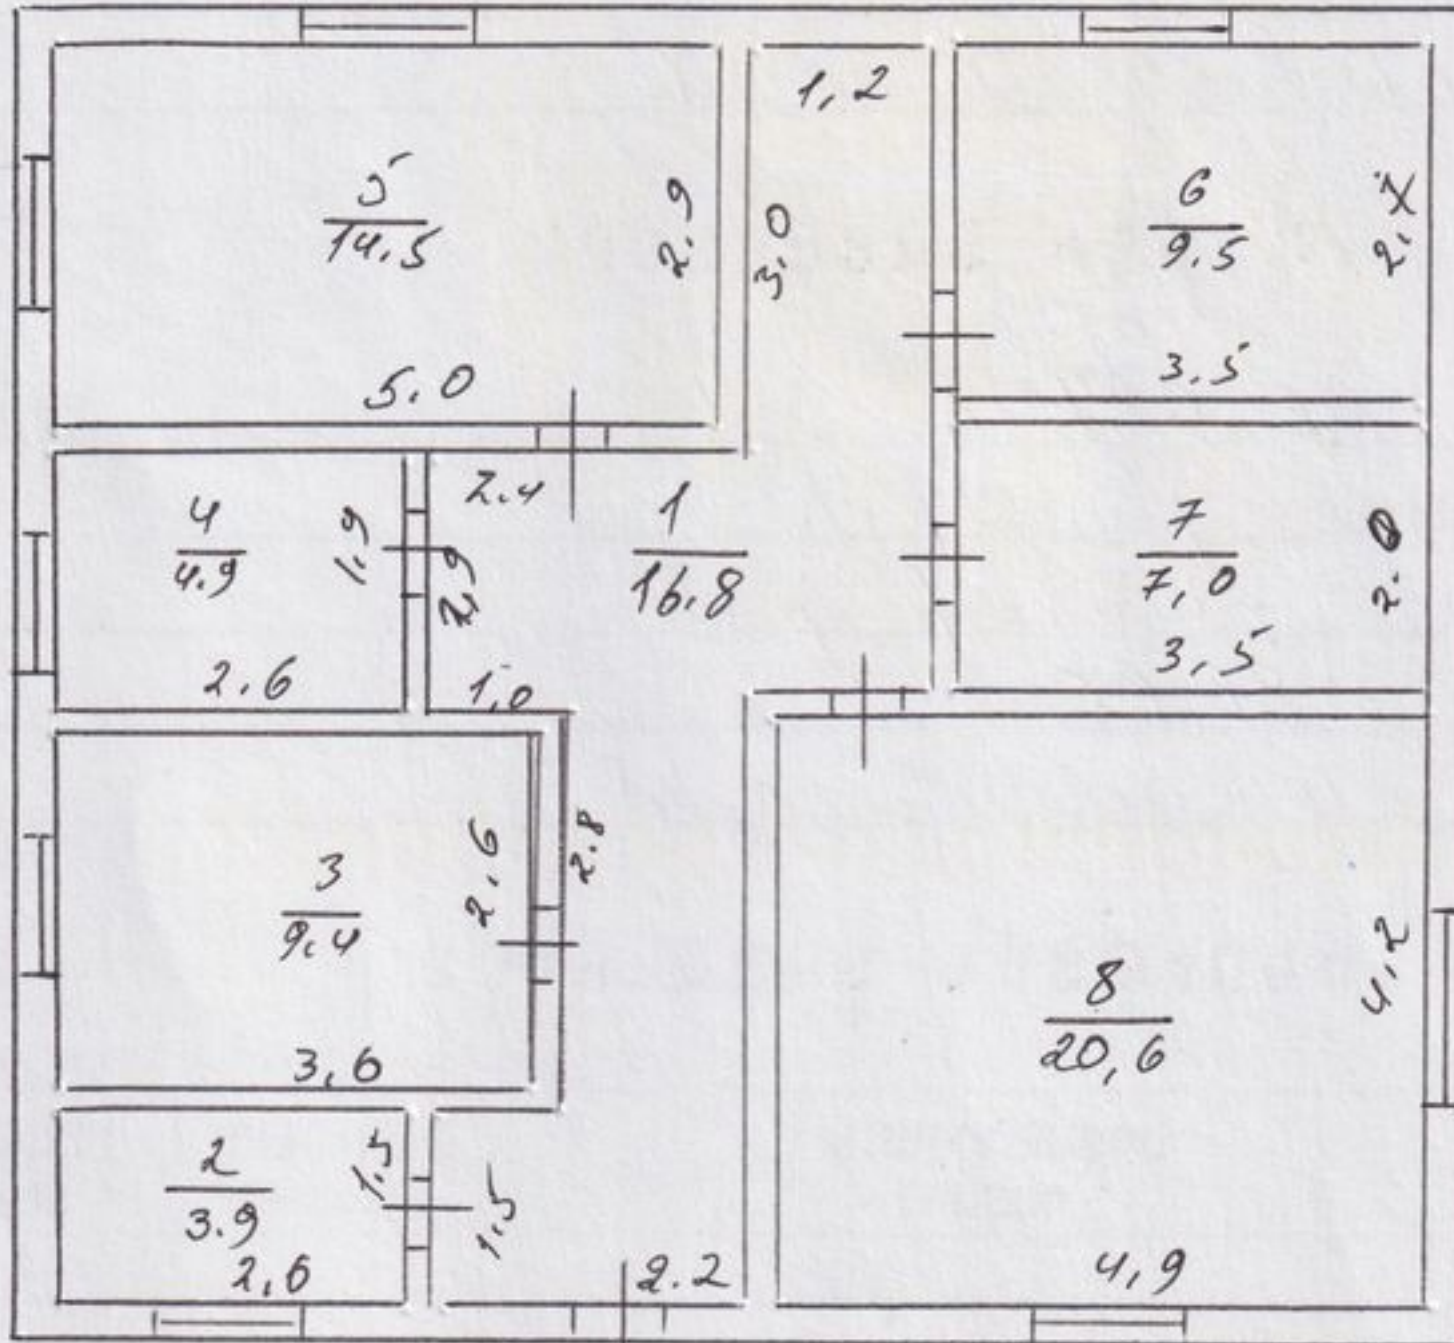 1,2
5
14.5
2.9
3.0
6
9.5
2.7
5.0
3.5
4
4.9
1.9
2.4
2,9
1
16.8
7
7,0
2.0
2.6
1,0
3,5
3
9.4
2,6
2.8
8
20,6
4,2
3,6
2
3.9
1.5
1.5
2,6
2.2
4,9